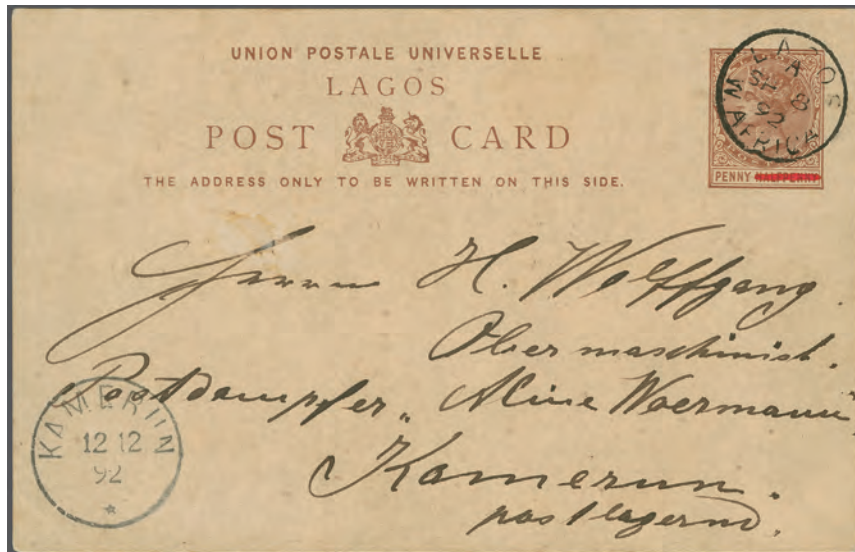 UNION POSTALE UNIVERSELLE
LAGOS
POST CARD
THE ADDRESS ONLY TO BE WRITTEN ON THIS SIDE.
PENNY HALFPENNY
LAGOS
A
8
92
W AFRICA
Herrn H. Wolffgang.
Obermaschinist.
Postdampfer „Aline Woermann"
Kamerun.
postlagernd.
KAMERUN
12 12
92
*